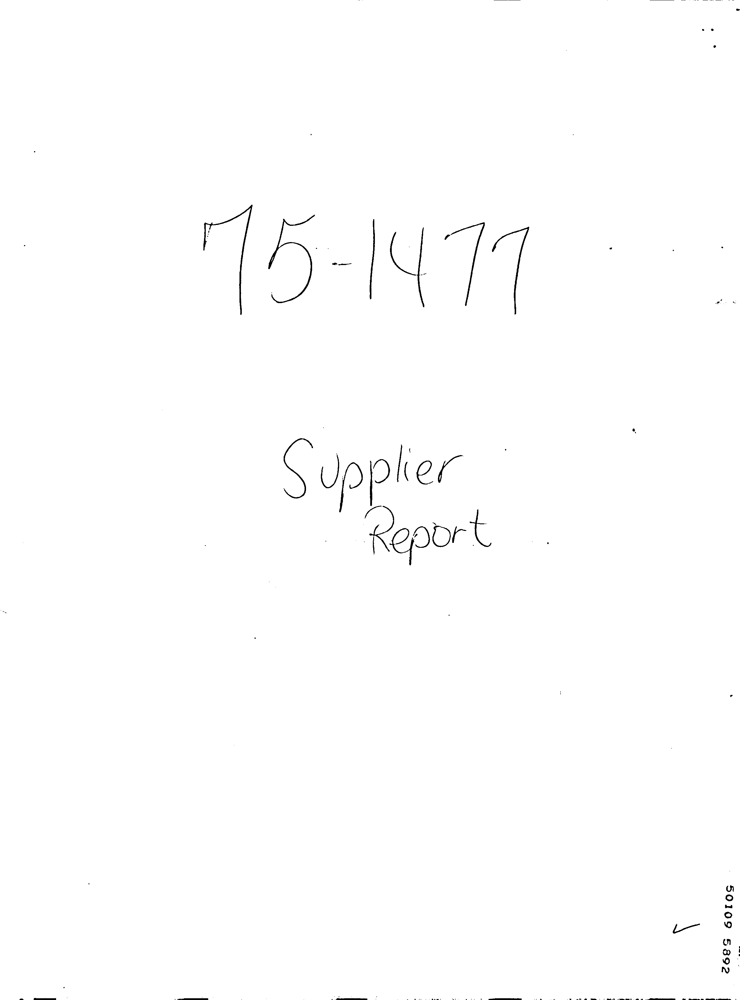 75-1477
Supplier
Report
50109 5892